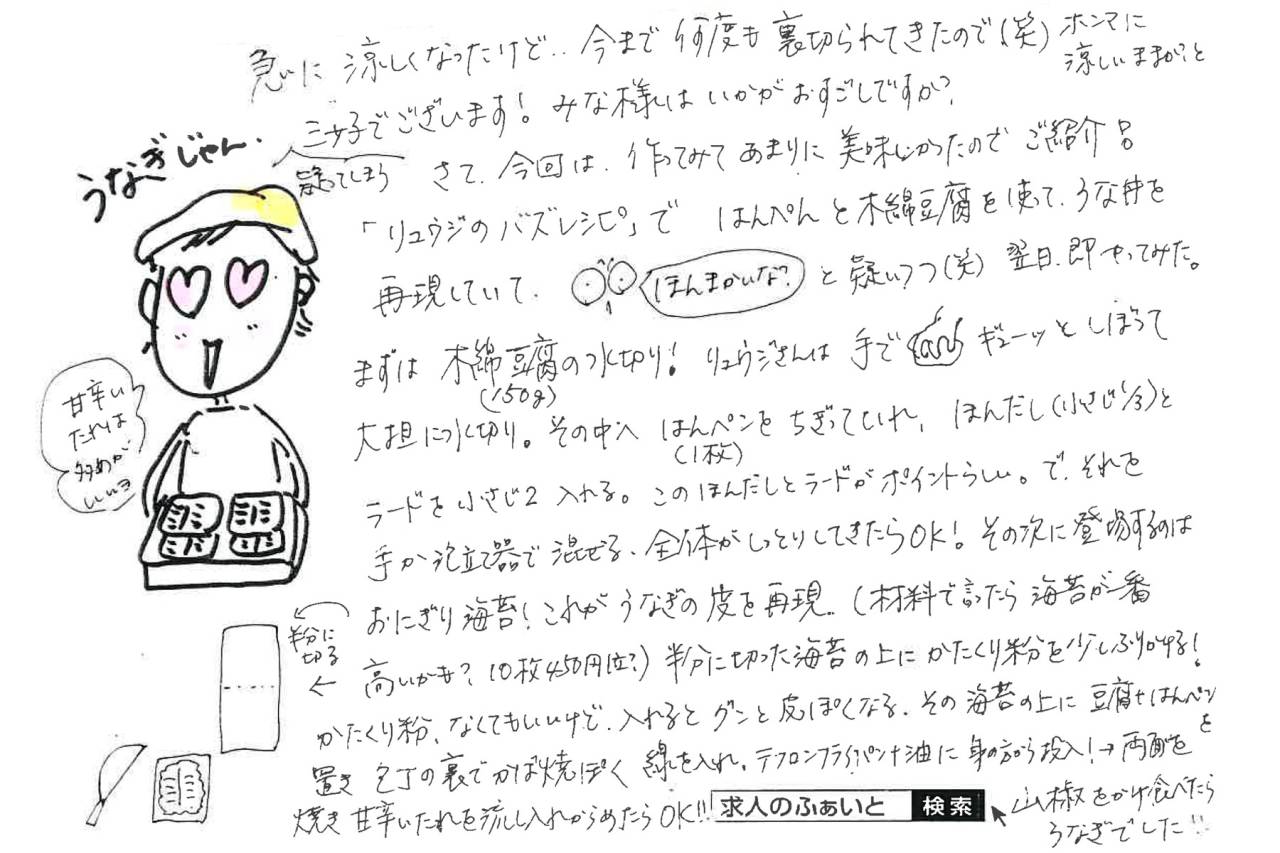 急に 涼しくなったけど‥今まで何度も裏切られてきたので(笑) ホンマに
涼しいままか?と
疑ってしまう
三女子でございます! みな様は いかがおすごしですか?
うなぎじゃん.
さて、今回は、作ってみて あまりに 美味しかったので ご紹介品
「リュウジのバズレシピ」で はんぺんと木綿豆腐を使って、うな丼を
再現していて、 ほんまかいな? と疑いつつ(笑) 翌日、即やってみた。
まずは 木綿豆腐の水切り! リュウジさんは 手で ギューッと しぼって
(150g)
大担に水切り。その中へ はんペンを ちぎっていれ、ほんだし(小さじ1/3)と
(1枚)
甘辛い
たれは
多めが
いいヨ
ラードを 小さじ2 入れる。このほんだしとラードが ポイントらしい。で、それを
手か泡立て器で 混ぜる、全体がしっとりしてきたらOK! その次に登場するのは
おにぎり海苔! これが うなぎの皮を再現‥(材料で言ったら 海苔が一番
半分に
切る
高いかも? 10枚450円位?) 半分に切った海苔の上に かたくり粉を少しふりかける!
かたくり粉、なくてもいいけど、入れると グンと皮ぽくなる、その海苔の上に 豆腐+はんペンを
置き 包丁の裏でかば焼ぽく 線を入れ、テフロンフライパン+油に 身の方から投入!→両面を
焼き 甘辛いたれを流し入れからめたらOK!!
求人のふぁいと 検索
山椒をかけ食べたら
うなぎでした!!